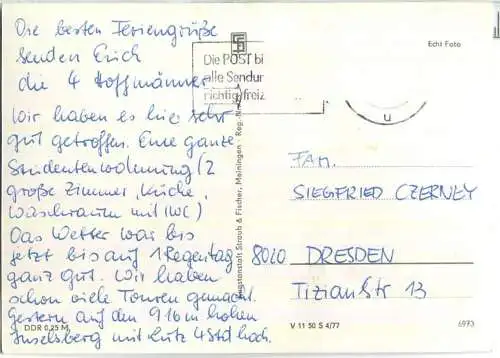 Die besten Feriengrüße
senden Euch
die 4 Hoffmänner
Wir haben es hier sehr
gut getroffen. Eine ganze
Studentenwohnung (2
große Zimmer, Küche,
Waschraum mit WC)
Das Wetter war bis
jetzt bis auf 1 Regentag
ganz gut. Wir haben
schon viele Touren gemacht.
Gestern auf den 916 m hohen
Inselsberg mit Lutz 4 Std hoch.
DDR 0,25 M
Die POST bi
alle Sendun
richtig freiz
Straub & Fischer, Meiningen - Reg.-Nr.
Echt Foto
U
FAM.
SIEGFRIED CZERNEY
8020 DRESDEN
Tizian Str 13
V 11 50 S 4/77
6973